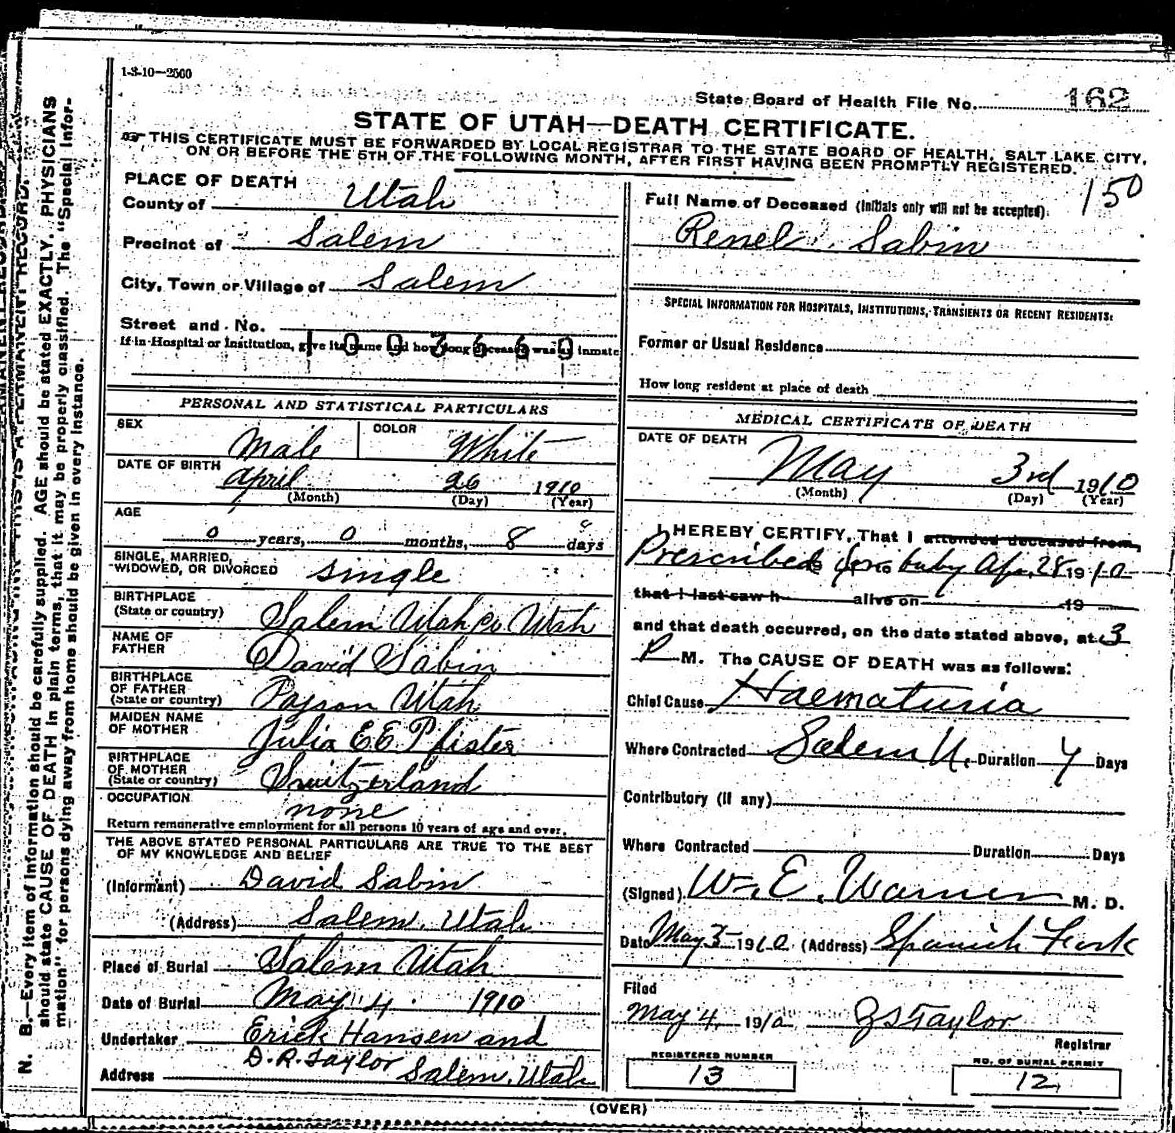 1-3-10—2500
State Board of Health File No. 162
STATE OF UTAH—DEATH CERTIFICATE.
THIS CERTIFICATE MUST BE FORWARDED BY LOCAL REGISTRAR TO THE STATE BOARD OF HEALTH, SALT LAKE CITY,
ON OR BEFORE THE 5TH OF THE FOLLOWING MONTH, AFTER FIRST HAVING BEEN PROMPTLY REGISTERED.
150
PLACE OF DEATH
County of Utah
Precinct of Salem
City, Town or Village of Salem
Street and No.
If in Hospital or Institution, give its name and how long deceased was an inmate
1003660
PERSONAL AND STATISTICAL PARTICULARS
SEX Male COLOR White
DATE OF BIRTH April 26 1910
(Month) (Day) (Year)
AGE
0 years, 0 months, 8 days
SINGLE, MARRIED,
WIDOWED, OR DIVORCED single
BIRTHPLACE
(State or country) Salem Utah Co Utah
NAME OF
FATHER David Sabin
BIRTHPLACE
OF FATHER
(State or country) Payson Utah
MAIDEN NAME
OF MOTHER Julia E E Pfister
BIRTHPLACE
OF MOTHER
(State or country) Switzerland
OCCUPATION none
Return remunerative employment for all persons 10 years of age and over.
THE ABOVE STATED PERSONAL PARTICULARS ARE TRUE TO THE BEST
OF MY KNOWLEDGE AND BELIEF
(Informant) David Sabin
(Address) Salem, Utah
Place of Burial Salem Utah
Date of Burial May 4 1910
Undertaker Erick Hansen and
D. R. Taylor
Address Salem, Utah
Full Name of Deceased (Initials only will not be accepted).
Renel Sabin
SPECIAL INFORMATION FOR HOSPITALS, INSTITUTIONS, TRANSIENTS OR RECENT RESIDENTS:
Former or Usual Residence
How long resident at place of death
MEDICAL CERTIFICATE OF DEATH
DATE OF DEATH
May 3rd 1910
(Month) (Day) (Year)
I HEREBY CERTIFY, That I attended deceased from,
Prescribed for baby Apr. 28 1910
that I last saw h alive on 19
and that death occurred, on the date stated above, at 3
P M. The CAUSE OF DEATH was as follows:
Chief Cause Haematuria
Where Contracted Salem U. Duration 7 Days
Contributory (if any)
Where Contracted Duration Days
(Signed) Wm E. Warner M. D.
Date May 3 1910 (Address) Spanish Fork
Filed
May 4 1910 Z S Taylor
Registrar
REGISTERED NUMBER
13
NO. OF BURIAL PERMIT
12
(OVER)
N. B.—Every item of information should be carefully supplied. AGE should be stated EXACTLY. PHYSICIANS
should state CAUSE OF DEATH in plain terms, that it may be properly classified. The "Special Infor-
mation" for persons dying away from home should be given in every instance.